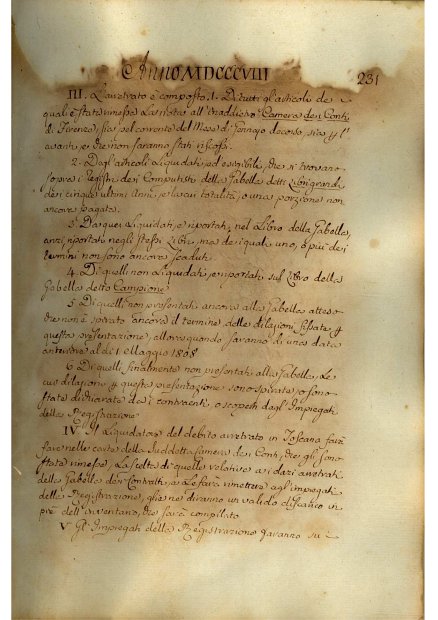 Anno MDCCCVIII
231
III. L'arretrato è composto. 1. Di tutti gl'articoli de
quali è stata rimessa la nota all' inaddietro Camera dei Conti
di Firenze, sia pel corrente del Mese di Gennajo decorso, sia p l'
avanti, e che non saranno stati riscossi.
2. Degl'articoli liquidati, ed esigibili, che si trovano
sopra i Registri dei Computisti della Gabella detti Libri grandi
dei cinque ultimi Anni, e la cui totalità, o una porzione non
ancora pagata.
3. Da quei liquidati, e riportati, nel Libro della Gabella,
anzi riportati negli stessi Libri, ma dei quali uno, o più dei
termini non sono ancora scaduti.
4. Di quelli non liquidati, e riportati sul Libro della
Gabella detto Campione
5. Di quelli non presentati ancora alla Gabella atteso
che non è spirato ancora il termine delle dilazioni fissate p
questa presentazione, allorquando saranno di una data
anteriore al dì 1 Maggio 1808
6. Di quelli finalmente non presentati alla Gabella, le
cui dilazioni p questa presentazione sono spirate, o sono
state dichiarate dai contraenti, o scoperte dagl'Impiegati
della Registrazione
IV. Il Liquidatore del debito arretrato in Toscana farà
fare nelle carte della suddetta Camera dei Conti, che gli sono
state rimesse, la scelta di quelle relative ai dazi arretrati
della Gabella dei Contratti, e le farà rimettere agl'impiegati
della Registrazione, che ne daranno un valido discarico in
piè dell'inventario, che sarà compilato
V. Gl'Impiegati della Registrazione faranno su i